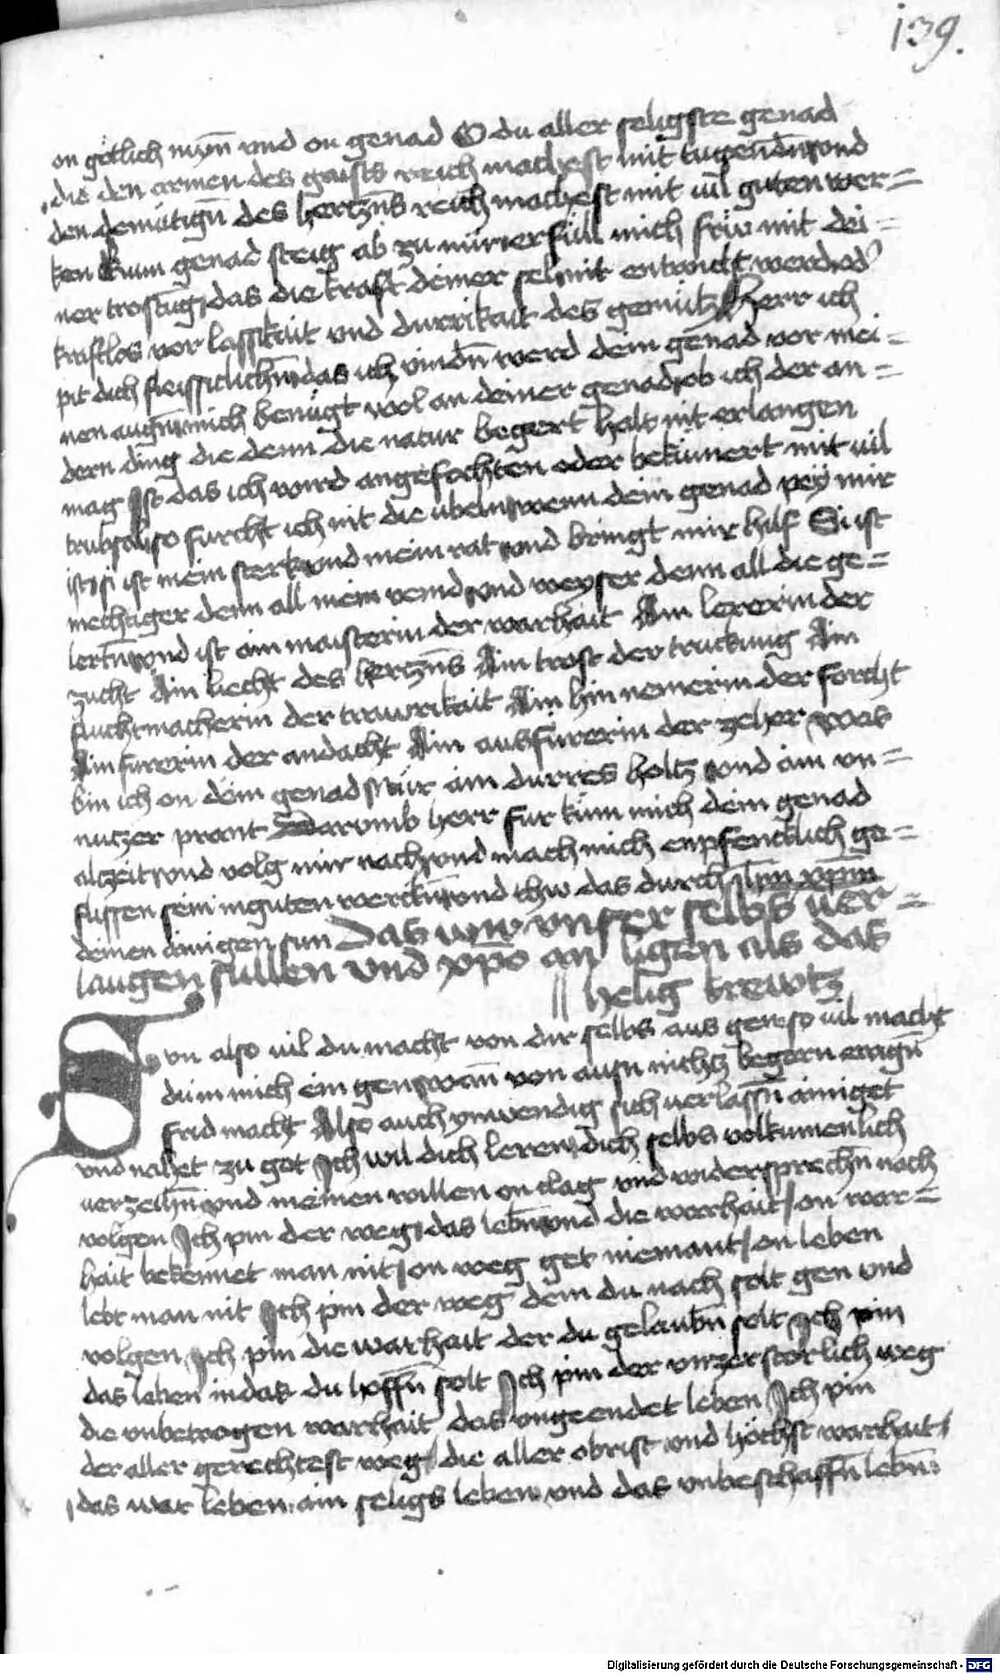 139.
on götlich mynn vnd on genad O du aller seligste genad
die den armen des gaists reich machest mit tugendn vnd
den demütign des hertzns reich machest mit vil guten wer=
ken kum genad steig ab zu mir erfüll mich frü mit dei=
ner trostung das die kraft deiner sel nit entwicht werd od
kraftlos vor lassikait vnd durrikait des gemütz Herr ich
pit dich fleissiclichn das ich vindn werd dein genad vor mei=
nen augn mich benügt wol an deiner genad ob ich der an=
dern ding die denn die natur begert halt nit erlangen
mag Ist das ich wird angefochten oder bekümert mit vil
trubsal so furcht ich nit die übeln wenn dein genad pey mir
ist si ist mein sterk vnd mein rat vnd bringt mir hilf Si ist
mechtiger denn all mein veind vnd weyser denn all die ge=
lertn vnd ist ain maisterin der warhait Ain lererin der
zucht Ain liecht des hertzns Ain trost der truckung Ain
fluchtmacherin der trawrikait Ain hin nemerin der forcht
Ain furerin der andacht Ain ausfürerin der zeher Was
bin ich on dein genad nür ain durres holtz vnd ain vn=
nutzer prant Darumb herr fur kum mich dein genad
alczeit vnd volg mir nach vnd mach mich enpfencklich ge=
flissen sein in guten werckn vnd thw das durch ihm xpm
deinen ainigen sun Das wir vnser selbs ver=
laugen sullen vnd xpo an ligen als das
helig krewtz
Svn also vil du macht von dir selbs aus gen so vil macht
du in mich ein gen wann von ausn nichtz begern ainign
frid macht Also auch ynwendig sich verlassn ainiget
vnd nahet zu got Ich wil dich leren dich selbs volkumenlich
verzeihn vnd meinen willen on clag vnd widersprechn nach
volgen Ich pin der weg das lebn vnd die warhait / on war=
hait bekennet man nit / on weg get niemant / on leben
lebt man nit Ich pin der weg dem du nach solt gen vnd
volgen Ich pin die warhait der du gelaubn solt Ich pin
das leben in das du hoffn solt Ich pin der vnzerstorlich weg
die vnbetrogen warhait das vngeendet leben Ich pin
der aller gerechtest weg / die aller obrist vnd höchst warhait /
das war leben ain seligs leben vnd das vnbeschaffn lebn
Digitalisierung gefördert durch die Deutsche Forschungsgemeinschaft - DFG